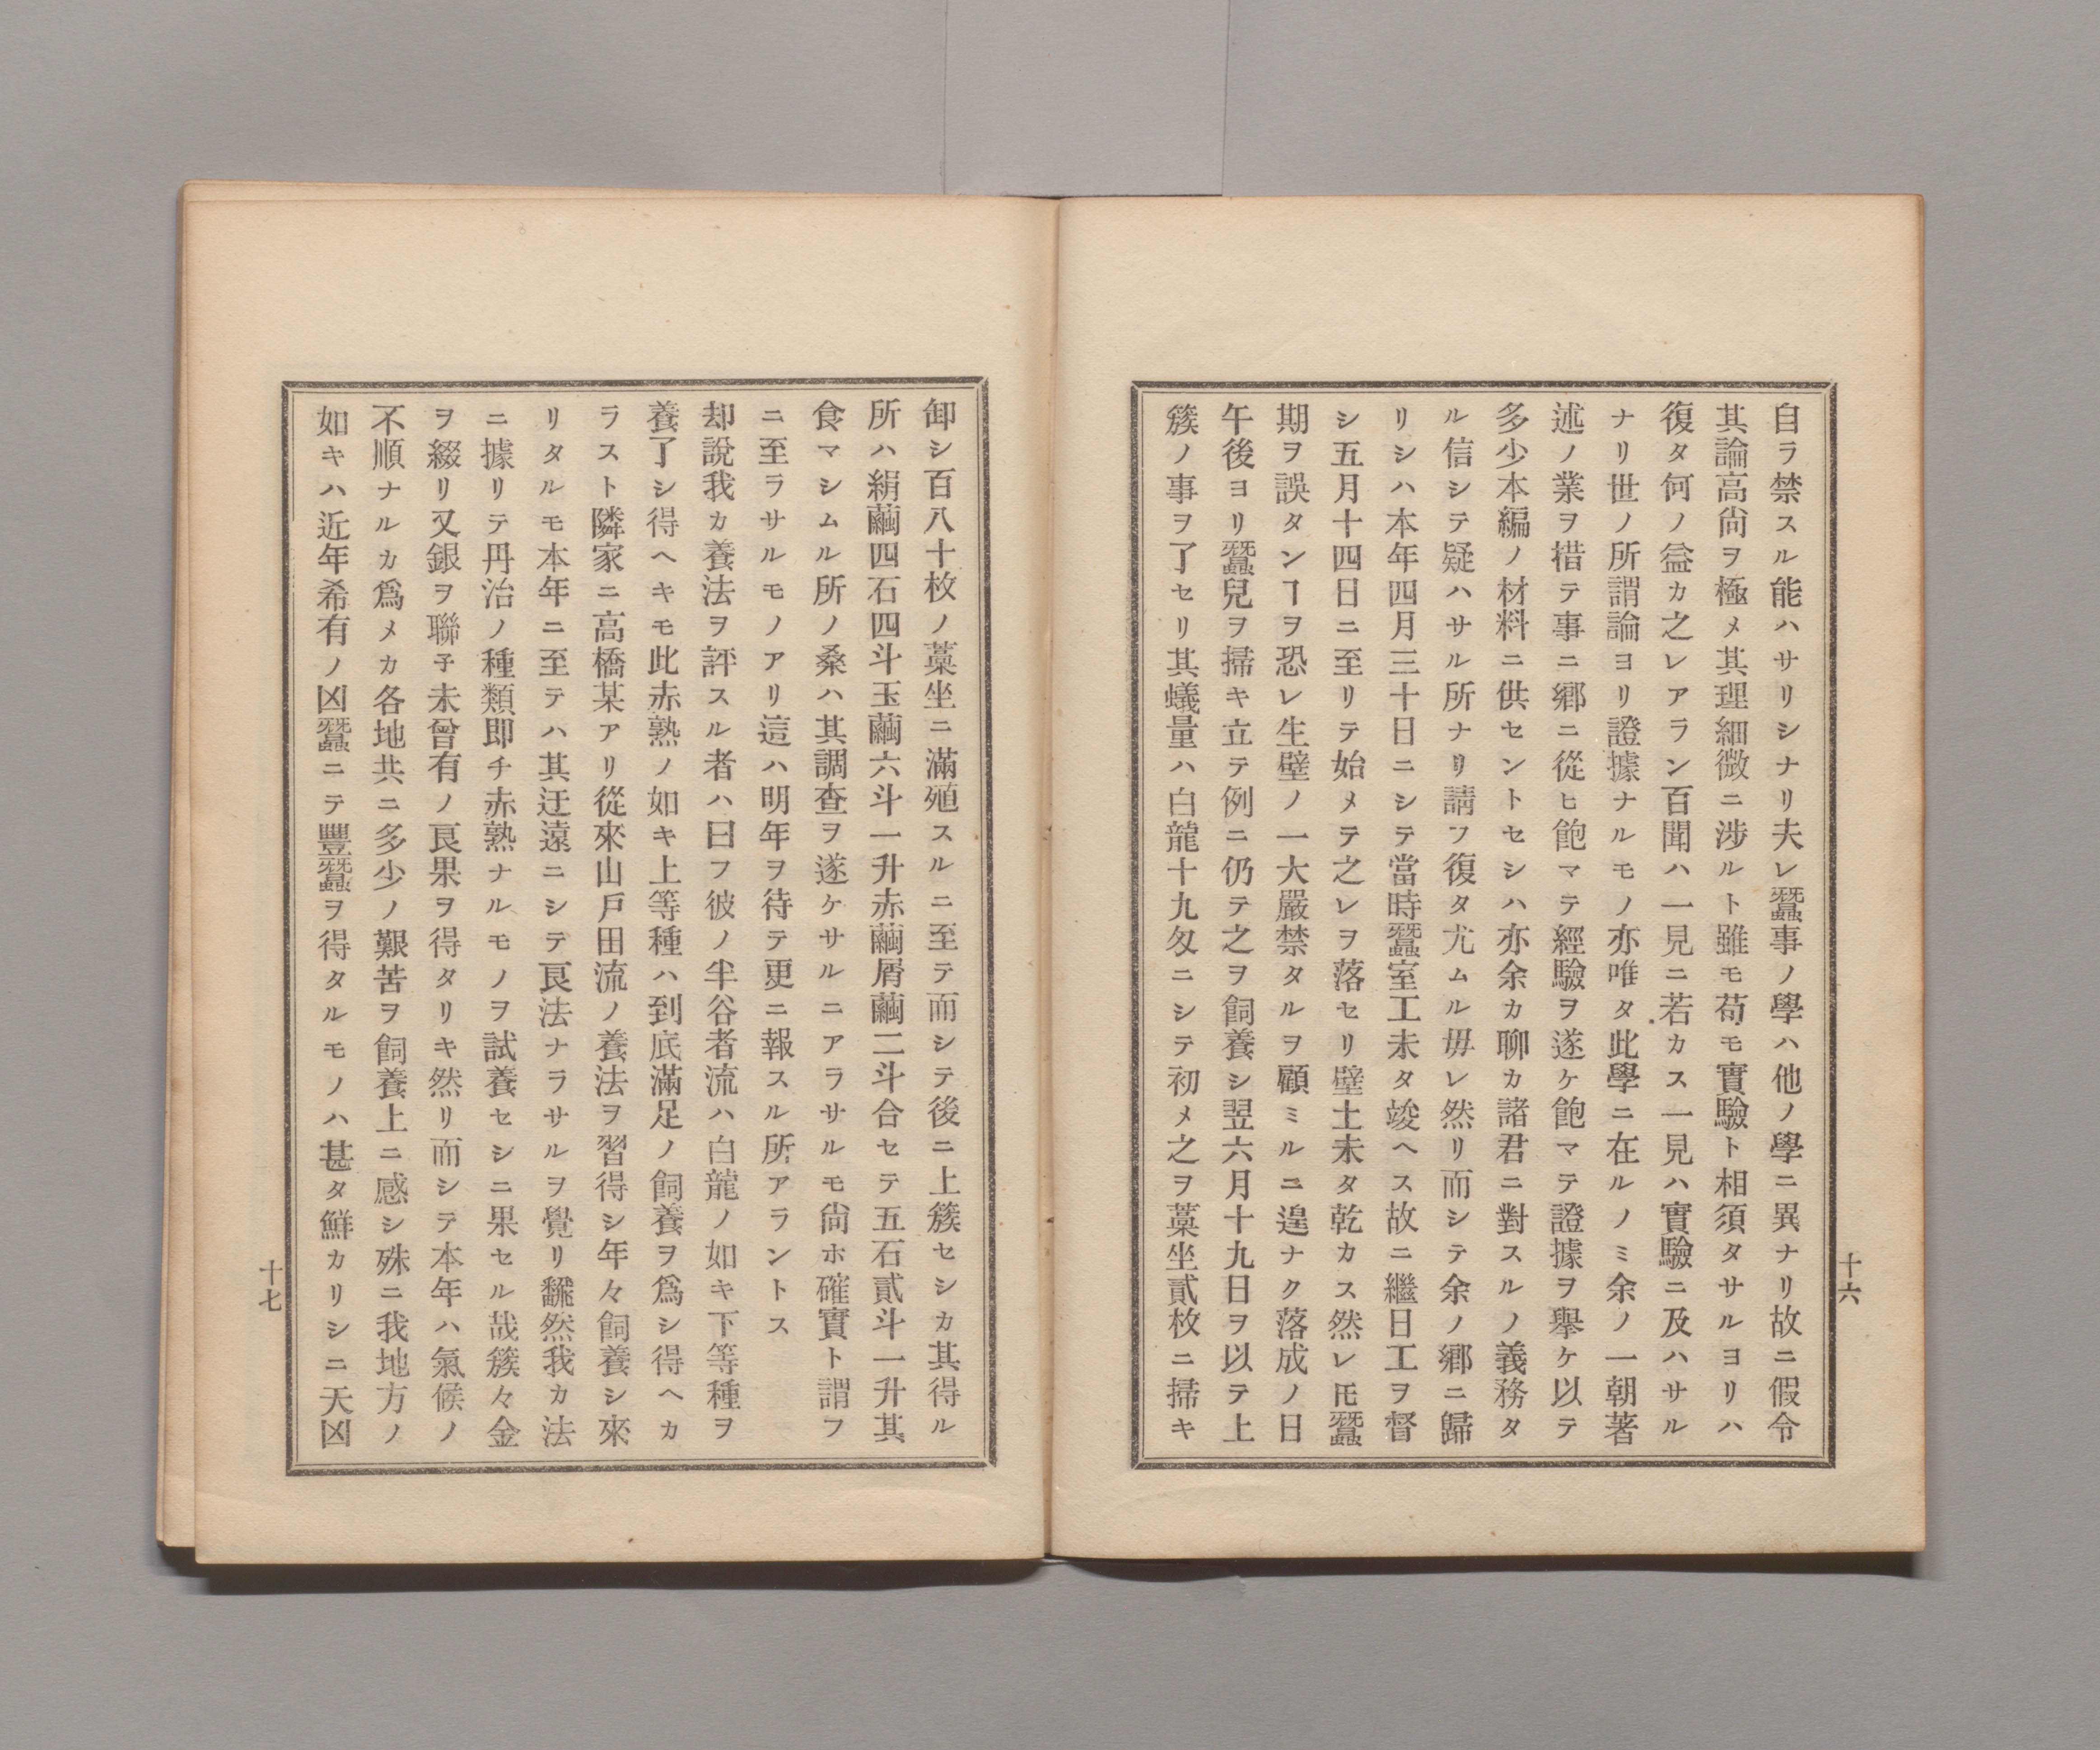 自ラ禁スル能ハサリシナリ夫レ蠶事ノ學ハ他ノ學ニ異ナリ故ニ假令
其論高尙ヲ極メ其理細微ニ涉ルト雖モ苟モ實驗ト相須タサルヨリハ
復タ何ノ益カ之レアラン百聞ハ一見ニ若カス一見ハ實驗ニ及ハサル
ナリ世ノ所謂論ヨリ證據ナルモノ亦唯タ此學ニ在ルノミ余ノ一朝著
述ノ業ヲ措テ事ニ鄕ニ從ヒ飽マテ經驗ヲ遂ケ飽マテ證據ヲ擧ケ以テ
多少本編ノ材料ニ供セントセシハ亦余カ聊カ諸君ニ對スルノ義務タ
ル信シテ疑ハサル所ナリ請フ復タ尤ムル毋レ然リ而シテ余ノ鄕ニ歸
リシハ本年四月三十日ニシテ當時蠶室工未タ竣ヘス故ニ繼日工ヲ督
シ五月十四日ニ至リテ始メテ之レヲ落セリ壁土未タ乾カス然レ𪜈蠶
期ヲ誤タンヿヲ恐レ生壁ノ一大嚴禁タルヲ顧ミルニ遑ナク落成ノ日
午後ヨリ蠶兒ヲ掃キ立テ例ニ仍テ之ヲ飼養シ翌六月十九日ヲ以テ上
簇ノ事ヲ了セリ其蟻量ハ白龍十九匁ニシテ初メ之ヲ藁坐貳枚ニ掃キ
十六
卸シ百八十枚ノ藁坐ニ滿殖スルニ至テ而シテ後ニ上簇セシカ其得ル
所ハ絹繭四石四斗玉繭六斗一升赤繭屑繭二斗合セテ五石貳斗一升其
食マシムル所ノ桑ハ其調査ヲ遂ケサルニアラサルモ尙ホ確實ト謂フ
ニ至ラサルモノアリ這ハ明年ヲ待テ更ニ報スル所アラントス
却說我カ養法ヲ評スル者ハ曰フ彼ノ半谷者流ハ白龍ノ如キ下等種ヲ
養了シ得ヘキモ此赤熟ノ如キ上等種ハ到底滿足ノ飼養ヲ爲シ得ヘカ
ラスト隣家ニ高橋某アリ從來山戶田流ノ養法ヲ習得シ年々飼養シ來
リタルモ本年ニ至テハ其迂遠ニシテ良法ナラサルヲ覺リ飜然我カ法
ニ據リテ丹治ノ種類即チ赤熟ナルモノヲ試養セシニ果セル哉簇々金
ヲ綴リ又銀ヲ聯子未曾有ノ良果ヲ得タリキ然リ而シテ本年ハ氣候ノ
不順ナルカ爲メカ各地共ニ多少ノ艱苦ヲ飼養上ニ感シ殊ニ我地方ノ
如キハ近年希有ノ凶蠶ニテ豐蠶ヲ得タルモノハ甚タ鮮カリシニ天凶
十七